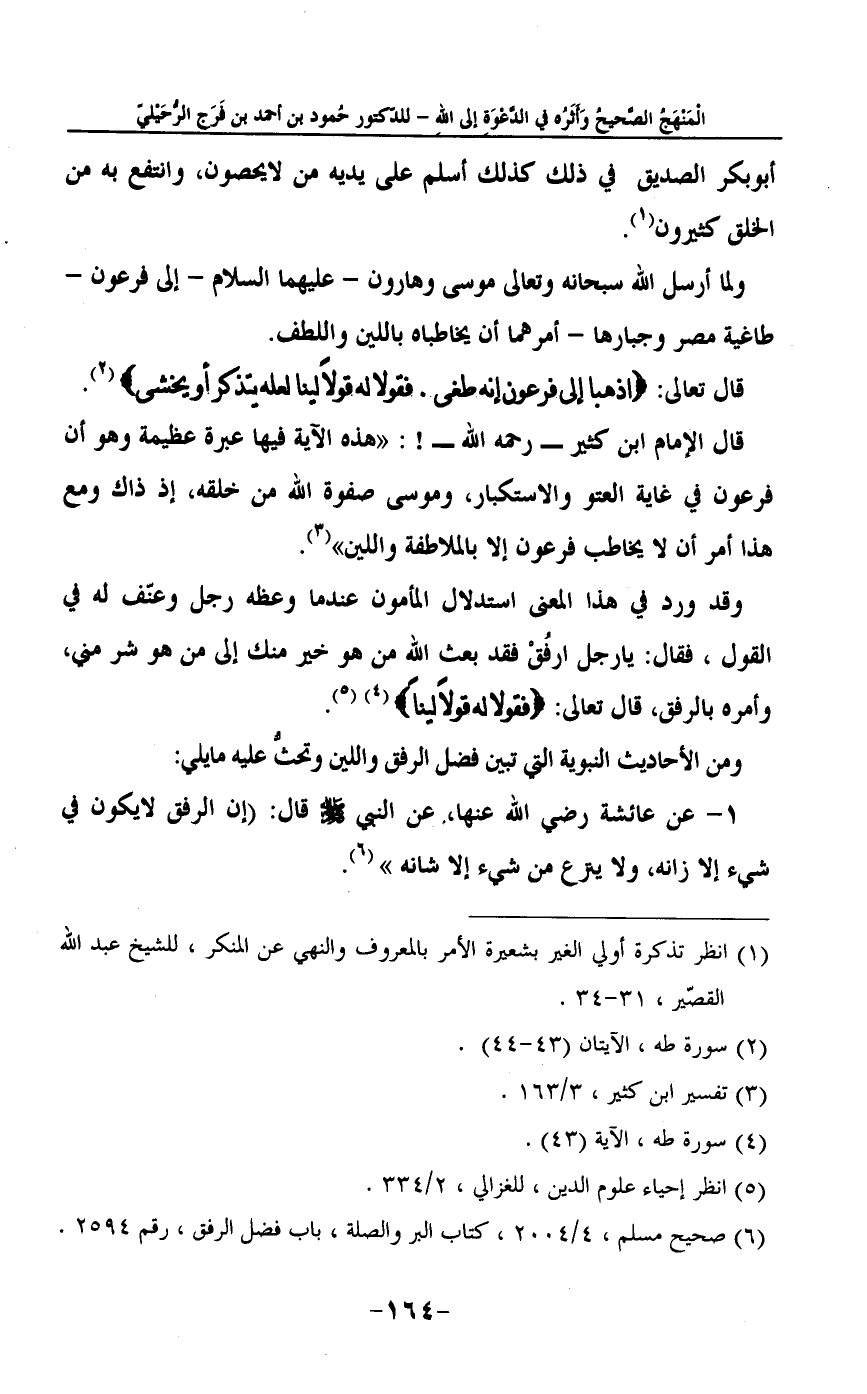 الْمَنْهَجُ الصَّحيحُ وَأَثَرُه في الدَّعْوَةِ إلى اللهِ – للدّكتور حُمود بن أحمد بن فَرَج الرُّحَيْليّ
أبوبكر الصديق في ذلك كذلك أسلم على يديه من لايحصون، وانتفع به من
الخلق كثيرون(١).
ولما أرسل الله سبحانه وتعالى موسى وهارون – عليهما السلام – إلى فرعون –
طاغية مصر وجبارها – أمرهما أن يخاطباه باللين واللطف.
قال تعالى: ﴿اذهبا إلى فرعون إنه طغى . فقولا له قولاً لينا لعله يتذكر أو يخشى﴾(٢).
قال الإمام ابن كثير ــ رحمه الله ــ ! : «هذه الآية فيها عبرة عظيمة وهو أن
فرعون في غاية العتو والاستكبار، وموسى صفوة الله من خلقه، إذ ذاك ومع
هذا أمر أن لا يخاطب فرعون إلا بالملاطفة واللين»(٣).
وقد ورد في هذا المعنى استدلال المأمون عندما وعظه رجل وعنّف له في
القول ، فقال: يارجل ارفُقْ فقد بعث الله من هو خير منك إلى من هو شر مني،
وأمره بالرفق، قال تعالى: ﴿فقولا له قولاً ليناً﴾(٤) (٥).
ومن الأحاديث النبوية التي تبين فضل الرفق واللين وتحثُّ عليه مايلي:
١– عن عائشة رضي الله عنها، عن النبي ﷺ قال: (إن الرفق لايكون في
شيء إلا زانه، ولا ينزع من شيء إلا شانه »(٦).
(١) انظر تذكرة أولي الغير بشعيرة الأمر بالمعروف والنهي عن المنكر ، للشيخ عبد الله
القصّير ، ٣١–٣٤ .
(٢) سورة طه ، الآيتان (٤٣–٤٤) .
(٣) تفسير ابن كثير ، ١٦٣/٣ .
(٤) سورة طه ، الآية (٤٣) .
(٥) انظر إحياء علوم الدين ، للغزالي ، ٣٣٤/٢ .
(٦) صحيح مسلم ، ٢٠٠٤/٤ ، كتاب البر والصلة ، باب فضل الرفق ، رقم ٢٥٩٤ .
–١٦٤–